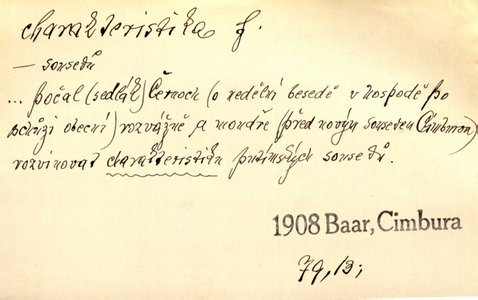 charakteristika f.
— sousedů
... počal (sedlák) Černoch (o nedělní besedě v hospodě po
schůzi obecní) rozvážně a moudře (před novým sousedem Cimburou)
rozvinovat charakteristiku putimských sousedů.
1908 Baar, Cimbura
79, 13;